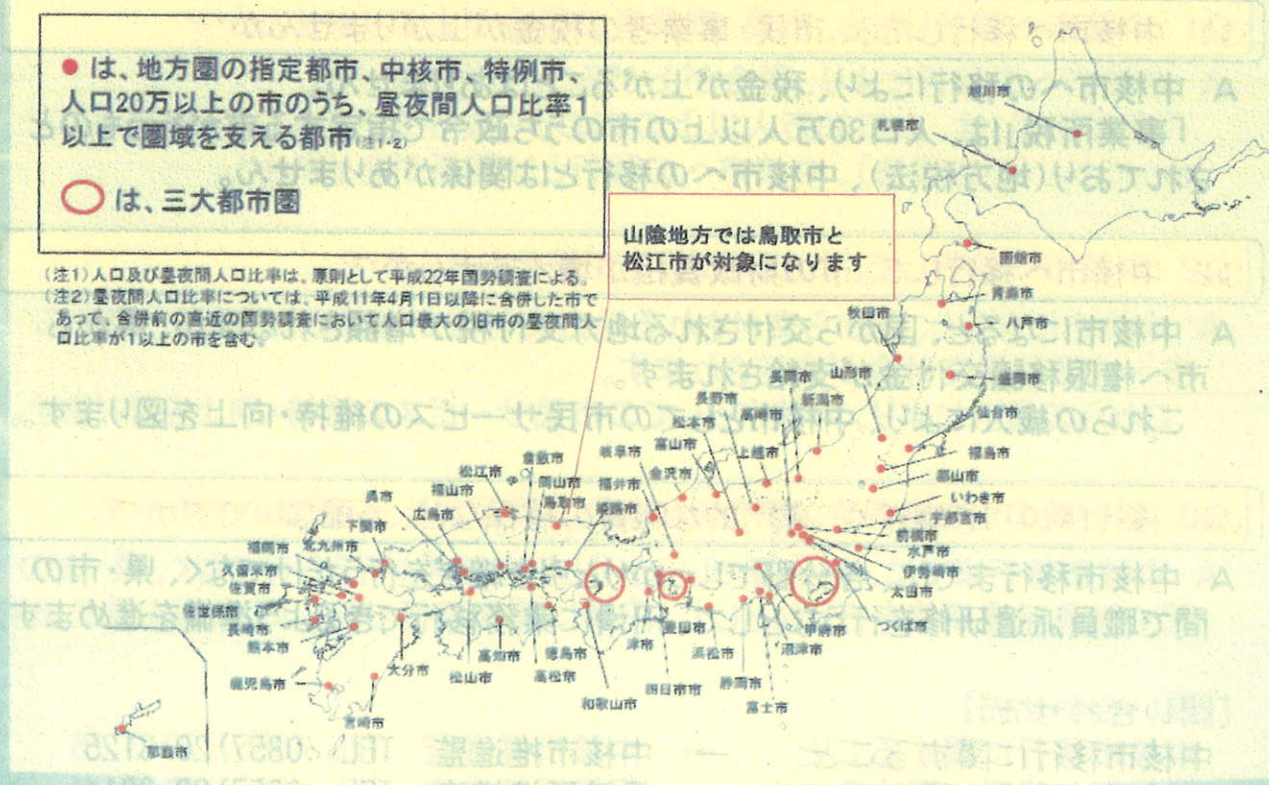 ●は、地方圏の指定都市、中核市、特例市、
人口20万以上の市のうち、昼夜間人口比率1
以上で圏域を支える都市(注1・2)
は、三大都市圏
(注1)人口及び昼夜間人口比率は、原則として平成22年国勢調査による。
(注2)昼夜間人口比率については、平成11年4月1日以降に合併した市で
あって、合併前の直近の国勢調査において人口最大の旧市の昼夜間人
口比率が1以上の市を含む。
山陰地方では鳥取市と
松江市が対象になります
旭川市
札幌市
函館市
青森市
八戸市
秋田市
盛岡市
山形市
仙台市
福島市
郡山市
いわき市
宇都宮市
前橋市
水戸市
伊勢崎市
太田市
つくば市
長岡市
新潟市
長野市
高崎市
松本市
上越市
富山市
金沢市
岐阜市
福井市
姫路市
倉敷市
岡山市
鳥取市
松江市
福山市
広島市
呉市
下関市
北九州市
福岡市
久留米市
佐賀市
佐世保市
長崎市
熊本市
鹿児島市
宮崎市
大分市
松山市
高知市
高松市
徳島市
和歌山市
津市
四日市市
豊田市
浜松市
静岡市
富士市
沼津市
甲府市
那覇市